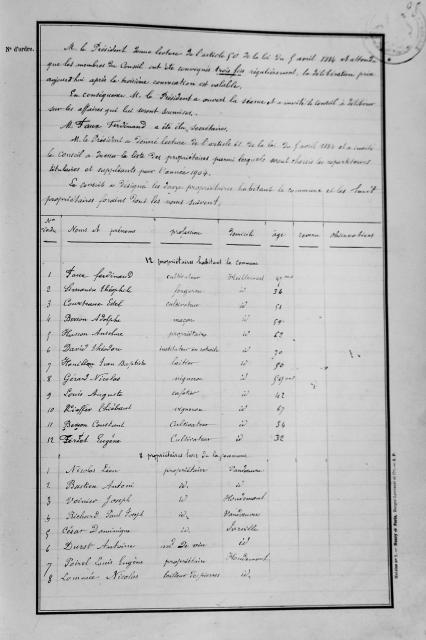 Nos d'ordre.
M. le Président donne lecture de l'article 50 de la loi du 5 avril 1884 et attendu
que les membres du Conseil ont été convoqués trois fois régulièrement, la délibération prise
aujourd'hui après la troisième convocation est valable.
En conséquence M. le Président a ouvert la séance et a invité le conseil à délibérer
sur les affaires qui lui seront soumises.
M. Faux Ferdinand a été élu secrétaire.
M. le Président a donné lecture de l'article 61 de la loi du 5 avril 1884 et a invité
le Conseil à dresser la liste des propriétaires parmi lesquels seront choisis les répartiteurs
titulaires et suppléants pour l'année 1904.
Le conseil a désigné les douze propriétaires habitant la commune et les huit
propriétaires forains dont les noms suivent.
Nos d'ordre Noms et prénoms profession domicile âge revenu observations
12 propriétaires habitant la commune
1 Faux Ferdinand cultivateur
2 Théophile forgeron id 36
3 cultivateur id
4 Adolphe maçon id
5 Husson Anselme propriétaire id 62
6 David Théodore instituteur en retraite id 70
7 Jean Baptiste laitier id 50
8 Gérard Nicolas vigneron id
9 Louis Auguste cafetier id 42
10 vigneron id 67
11 Constant Cultivateur id 34
12 Eugène Cultivateur id 32
8 propriétaires hors de la commune
1 Nicolas Léon propriétaire Vandœuvre
2 Bastien Antoni id. id
3 Voinier Joseph id Houdemont
4 Richard Paul Joseph id. Vandœuvre
5 César Dominique id
6 Durst Antoine md de vin id
7 Poirel Louis Eugène propriétaire Houdemont
8 Nicolas tailleur de pierres id.